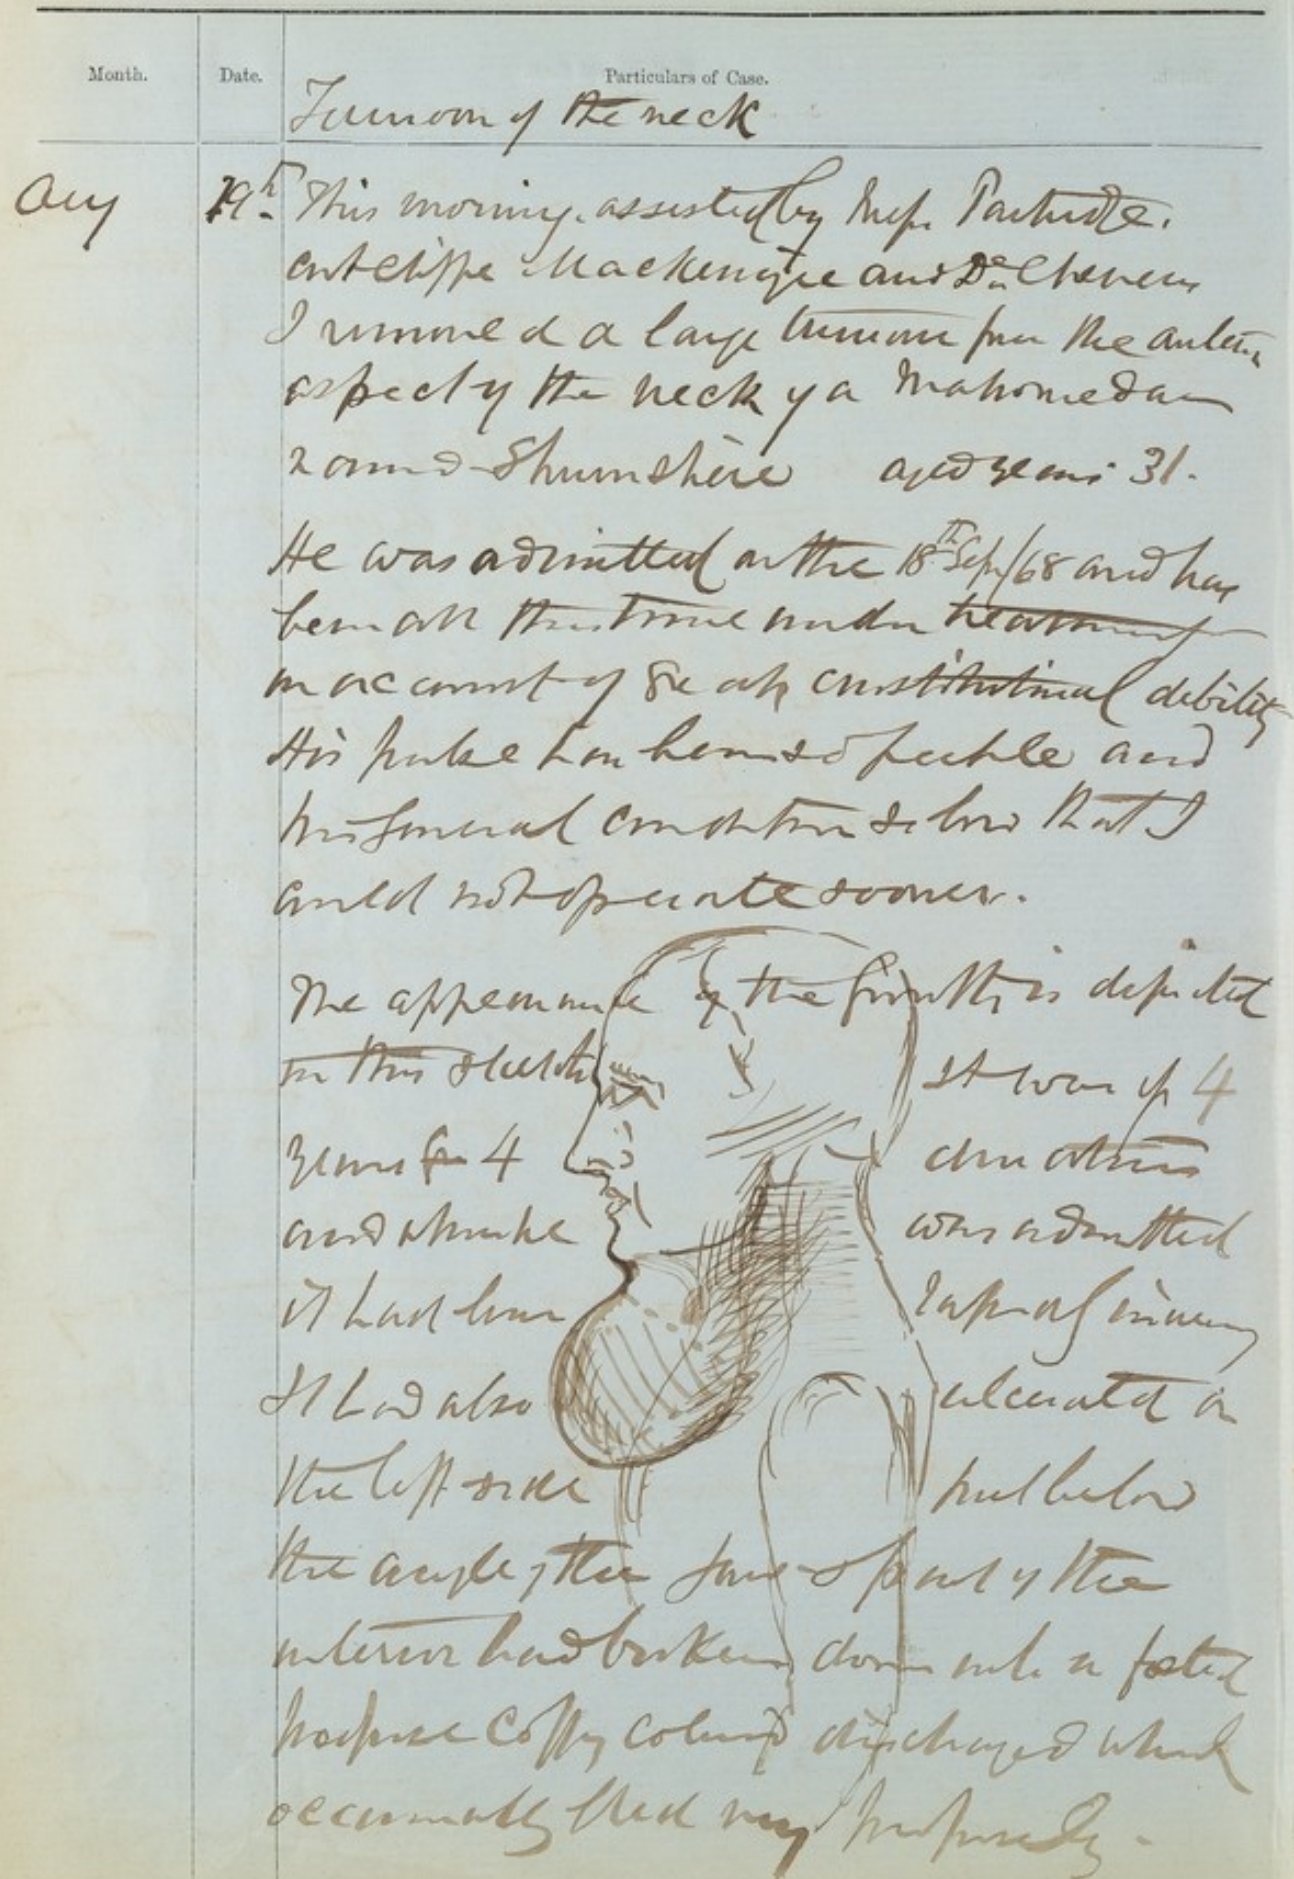 Month. Date. Particulars of Case.
Tumour of the neck
Aug 19th This morning assisted by Messrs Partridge.
Cutcliffe Mackenzie and Dr Chevers
I removed a large tumour from the anterior
aspect of the neck of a Mahomedan
named Shumshere aged years 31.
He was admitted on the 18th Sep/68 and has
been all this time under treatment
on account of constitutional debility
His pulse has been so feeble and
his general condition so low that I
could not operate sooner.
The appearance of the growth is depicted
in this sketch It was of 4
years 4 duration
and when he was admitted
it had been rapidly increasing
It had also ulcerated on
the left side just below
the angle of the jaw & part of the
interior had broken down into a foetid
profuse coffee coloured discharge which
occasionally bled very profusely.